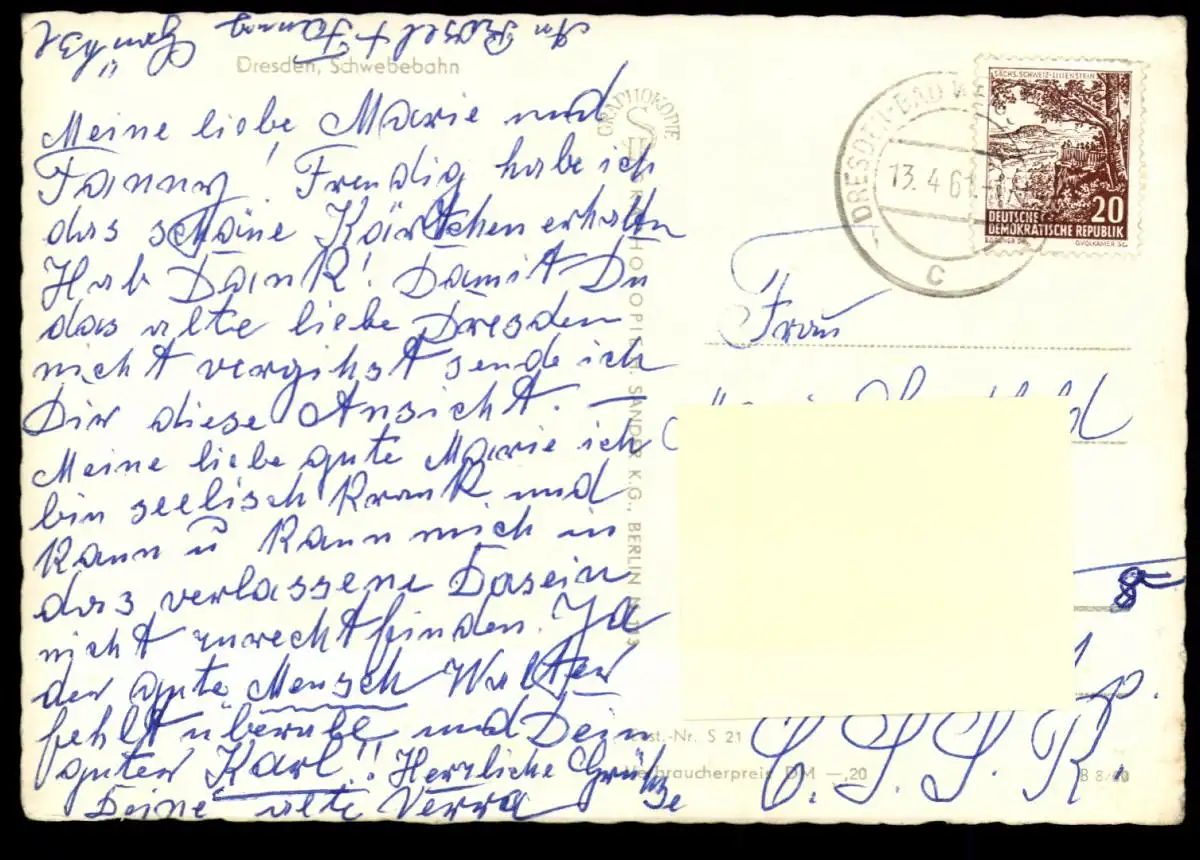 An Rosel + Fanny
Dresden, Schwebebahn
Meine liebe Marie und
Fanny! Freudig habe ich
das schöne Kärtchen erhalten
Hab Dank! Damit Du
das alte liebe Dresden
nicht vergihst sende ich
Dir diese Ansicht. —
Meine liebe gute Marie ich
bin seelisch Krank und
Kann u Kann mich in
das verlassene Dasein
nicht zurechtfinden. Ja
der gute Mensch Walter
fehlt überahl und Dein
guter Karl!! Herzliche Grüße
Deine alte Verra
GRAPHOKOPIE
H. SANDER K.G., BERLIN
Best.-Nr. S 21
Verbraucherpreis DM —,20
B 8/60
DRESDEN-BAD W
13.4.61
C
SÄCHS. SCHWEIZ·LILIENSTEIN
20
DEUTSCHE
DEMOKRATISCHE REPUBLIK
G.VOLKAMER SC.
Frau